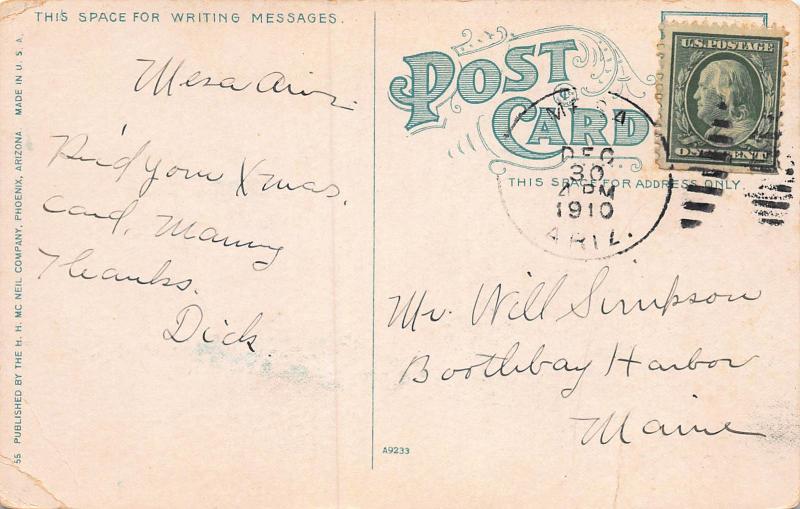 THIS SPACE FOR WRITING MESSAGES.
55 PUBLISHED BY THE H. H. MC NEIL COMPANY, PHOENIX, ARIZONA MADE IN U. S. A.
Mesa Ariz.
Rec'd your Xmas.
card, Many
Thanks.
Dick.
POST CARD
THIS SPACE FOR ADDRESS ONLY.
U.S. POSTAGE
ONE CENT
MESA
DEC
30
4 PM
1910
ARIZ.
Mr. Will Simpson
Boothbay Harbor
Maine
A9233